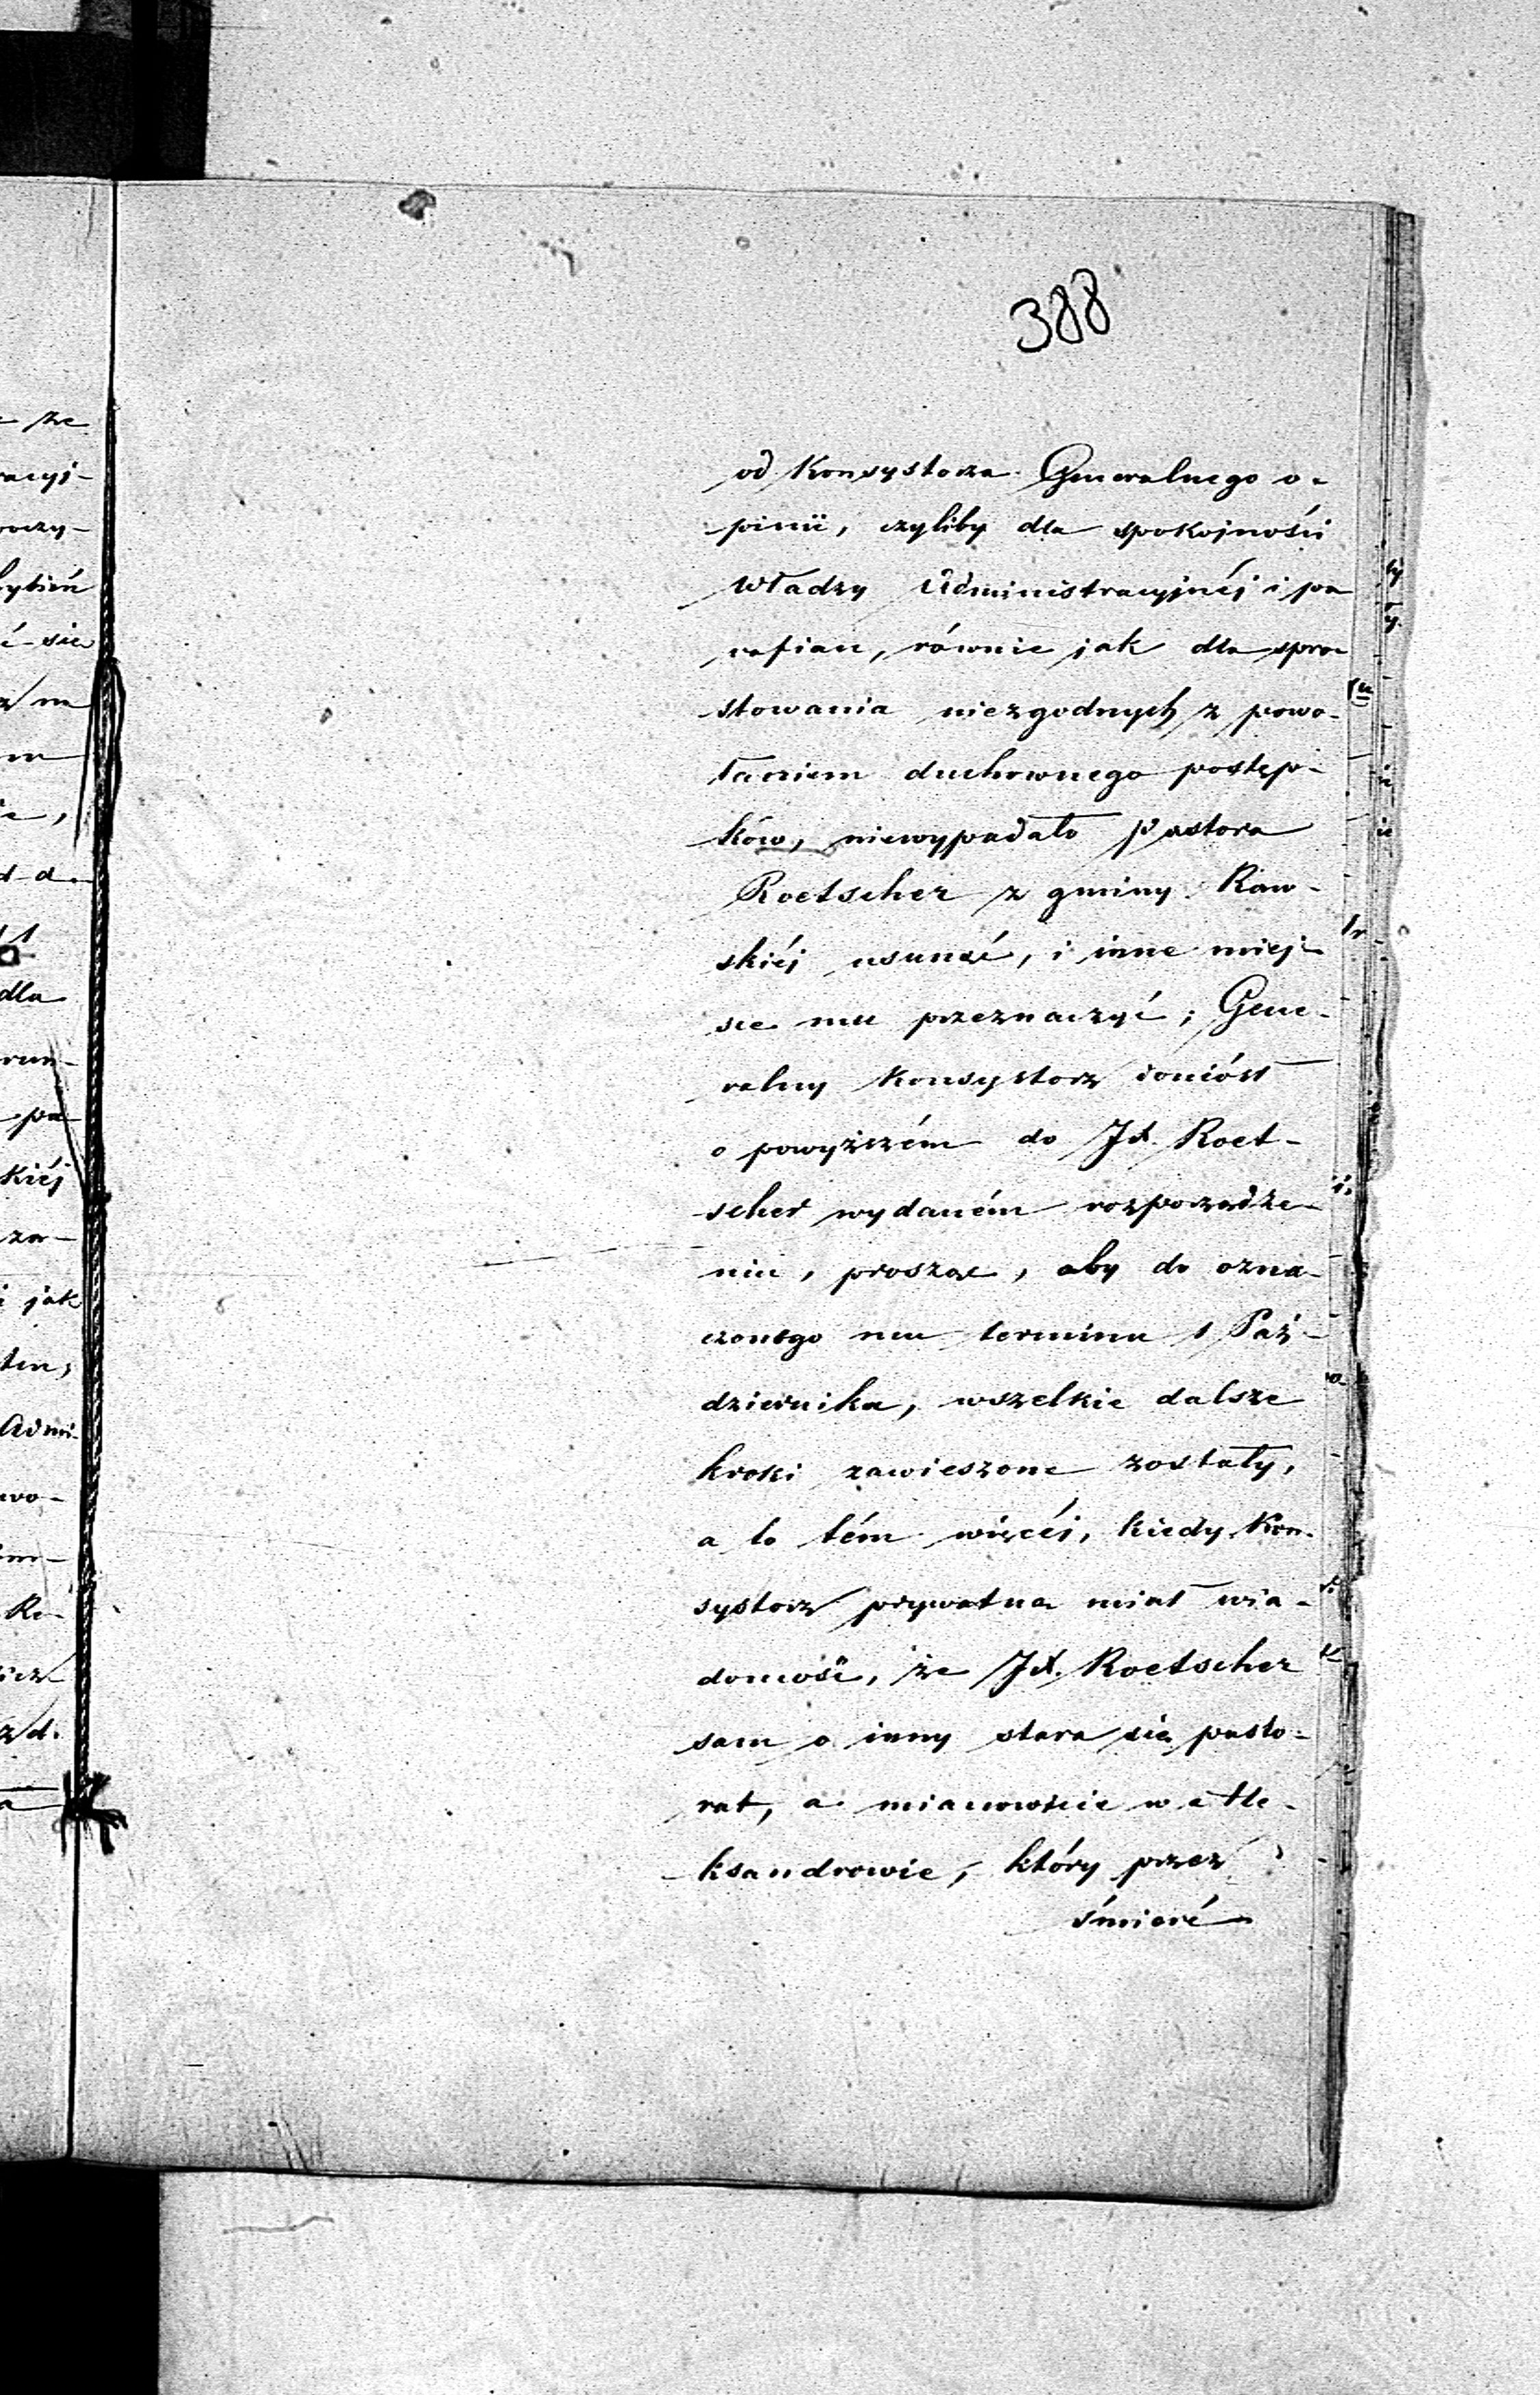 388
od Konsystorza Generalnego o-
pinii, czyliby dla spokojności
Władzy Administracyjnéj i pa
rafian, równie jak dla spro-
stowania niezgodnych z powo-
łaniem duchownego postęp-
ków, niewypadało Pastora
Roetscher z gminy Raw-
skiéj usunąć, i inne miej-
sce mu przeznaczyć; Gene-
ralny Konsystorz doniósł
o powyższém do JX. Roet-
scher wydaném rozporządze-
niu, prosząc, aby do ozna-
czonego mu terminu 1 Paź-
dziernika, wszelkie dalsze
kroki zawieszone zostały,
a to tém więcéj, kiedy Kon-
systorz prywatną miał wia-
domość, że JX. Roetscher
sam o inny stara się pasto-
rat, a mianowicie w Ale-
ksandrowie, który przez
śmierć